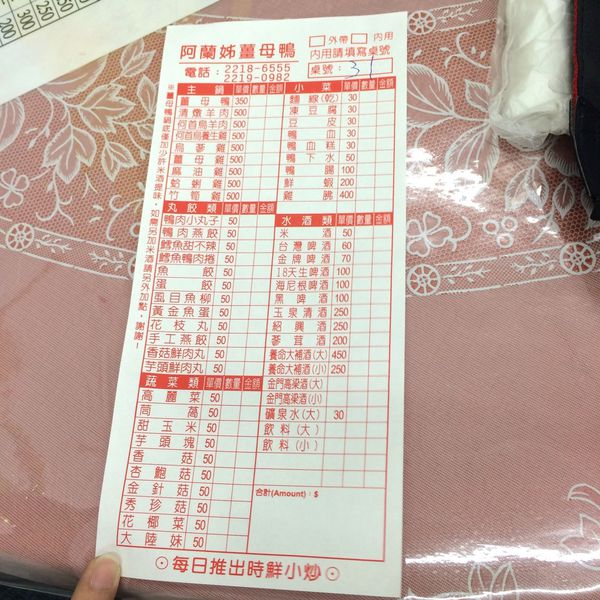 阿蘭姊薑母鴨
電話：2218-6555
2219-0982
□外帶 □內用
內用請填寫桌號
桌號：31
※薑母鴨鍋底僅加少許米酒提味，如需另加米酒請另外加點，謝謝！
主鍋 單價 數量 金額
薑母鴨 350
清燉羊肉 500
何首烏羊肉 500
何首烏養生雞 500
烏蔘雞 500
薑母雞 500
麻油雞 500
蛤蜊雞 500
竹筍雞 500
丸餃類 單價 數量 金額
鴨肉小丸子 50
鴨肉燕餃 50
鱈魚甜不辣 50
鱈魚鴨肉捲 50
魚餃 50
蛋餃 50
虱目魚柳 50
黃金魚蛋 50
花枝丸 50
手工燕餃 50
香菇鮮肉丸 50
芋頭鮮肉丸 50
蔬菜類 單價 數量 金額
高麗菜 50
茼蒿 50
甜玉米 50
芋頭塊 50
香菇 50
杏鮑菇 50
金針菇 50
秀珍菇 50
花椰菜 50
大陸妹 50
小菜 單價 數量 金額
麵線(乾) 30
凍豆腐 30
豆皮 30
鴨血 30
鴨血糕 30
鴨下水 50
鴨腸 100
鮮蝦 200
雞佛 400
水酒類 單價 數量 金額
米酒 50
台灣啤酒 60
金牌啤酒 70
18天生啤酒 100
海尼根啤酒 100
黑啤酒 100
玉泉清酒 250
紹興酒 250
蔘茸酒 200
養命大補酒(大) 450
養命大補酒(小) 250
金門高梁酒(大)
金門高梁酒(小)
礦泉水(大) 30
飲料(大)
飲料(小)
合計(Amount)：$
⊙每日推出時鮮小炒⊙